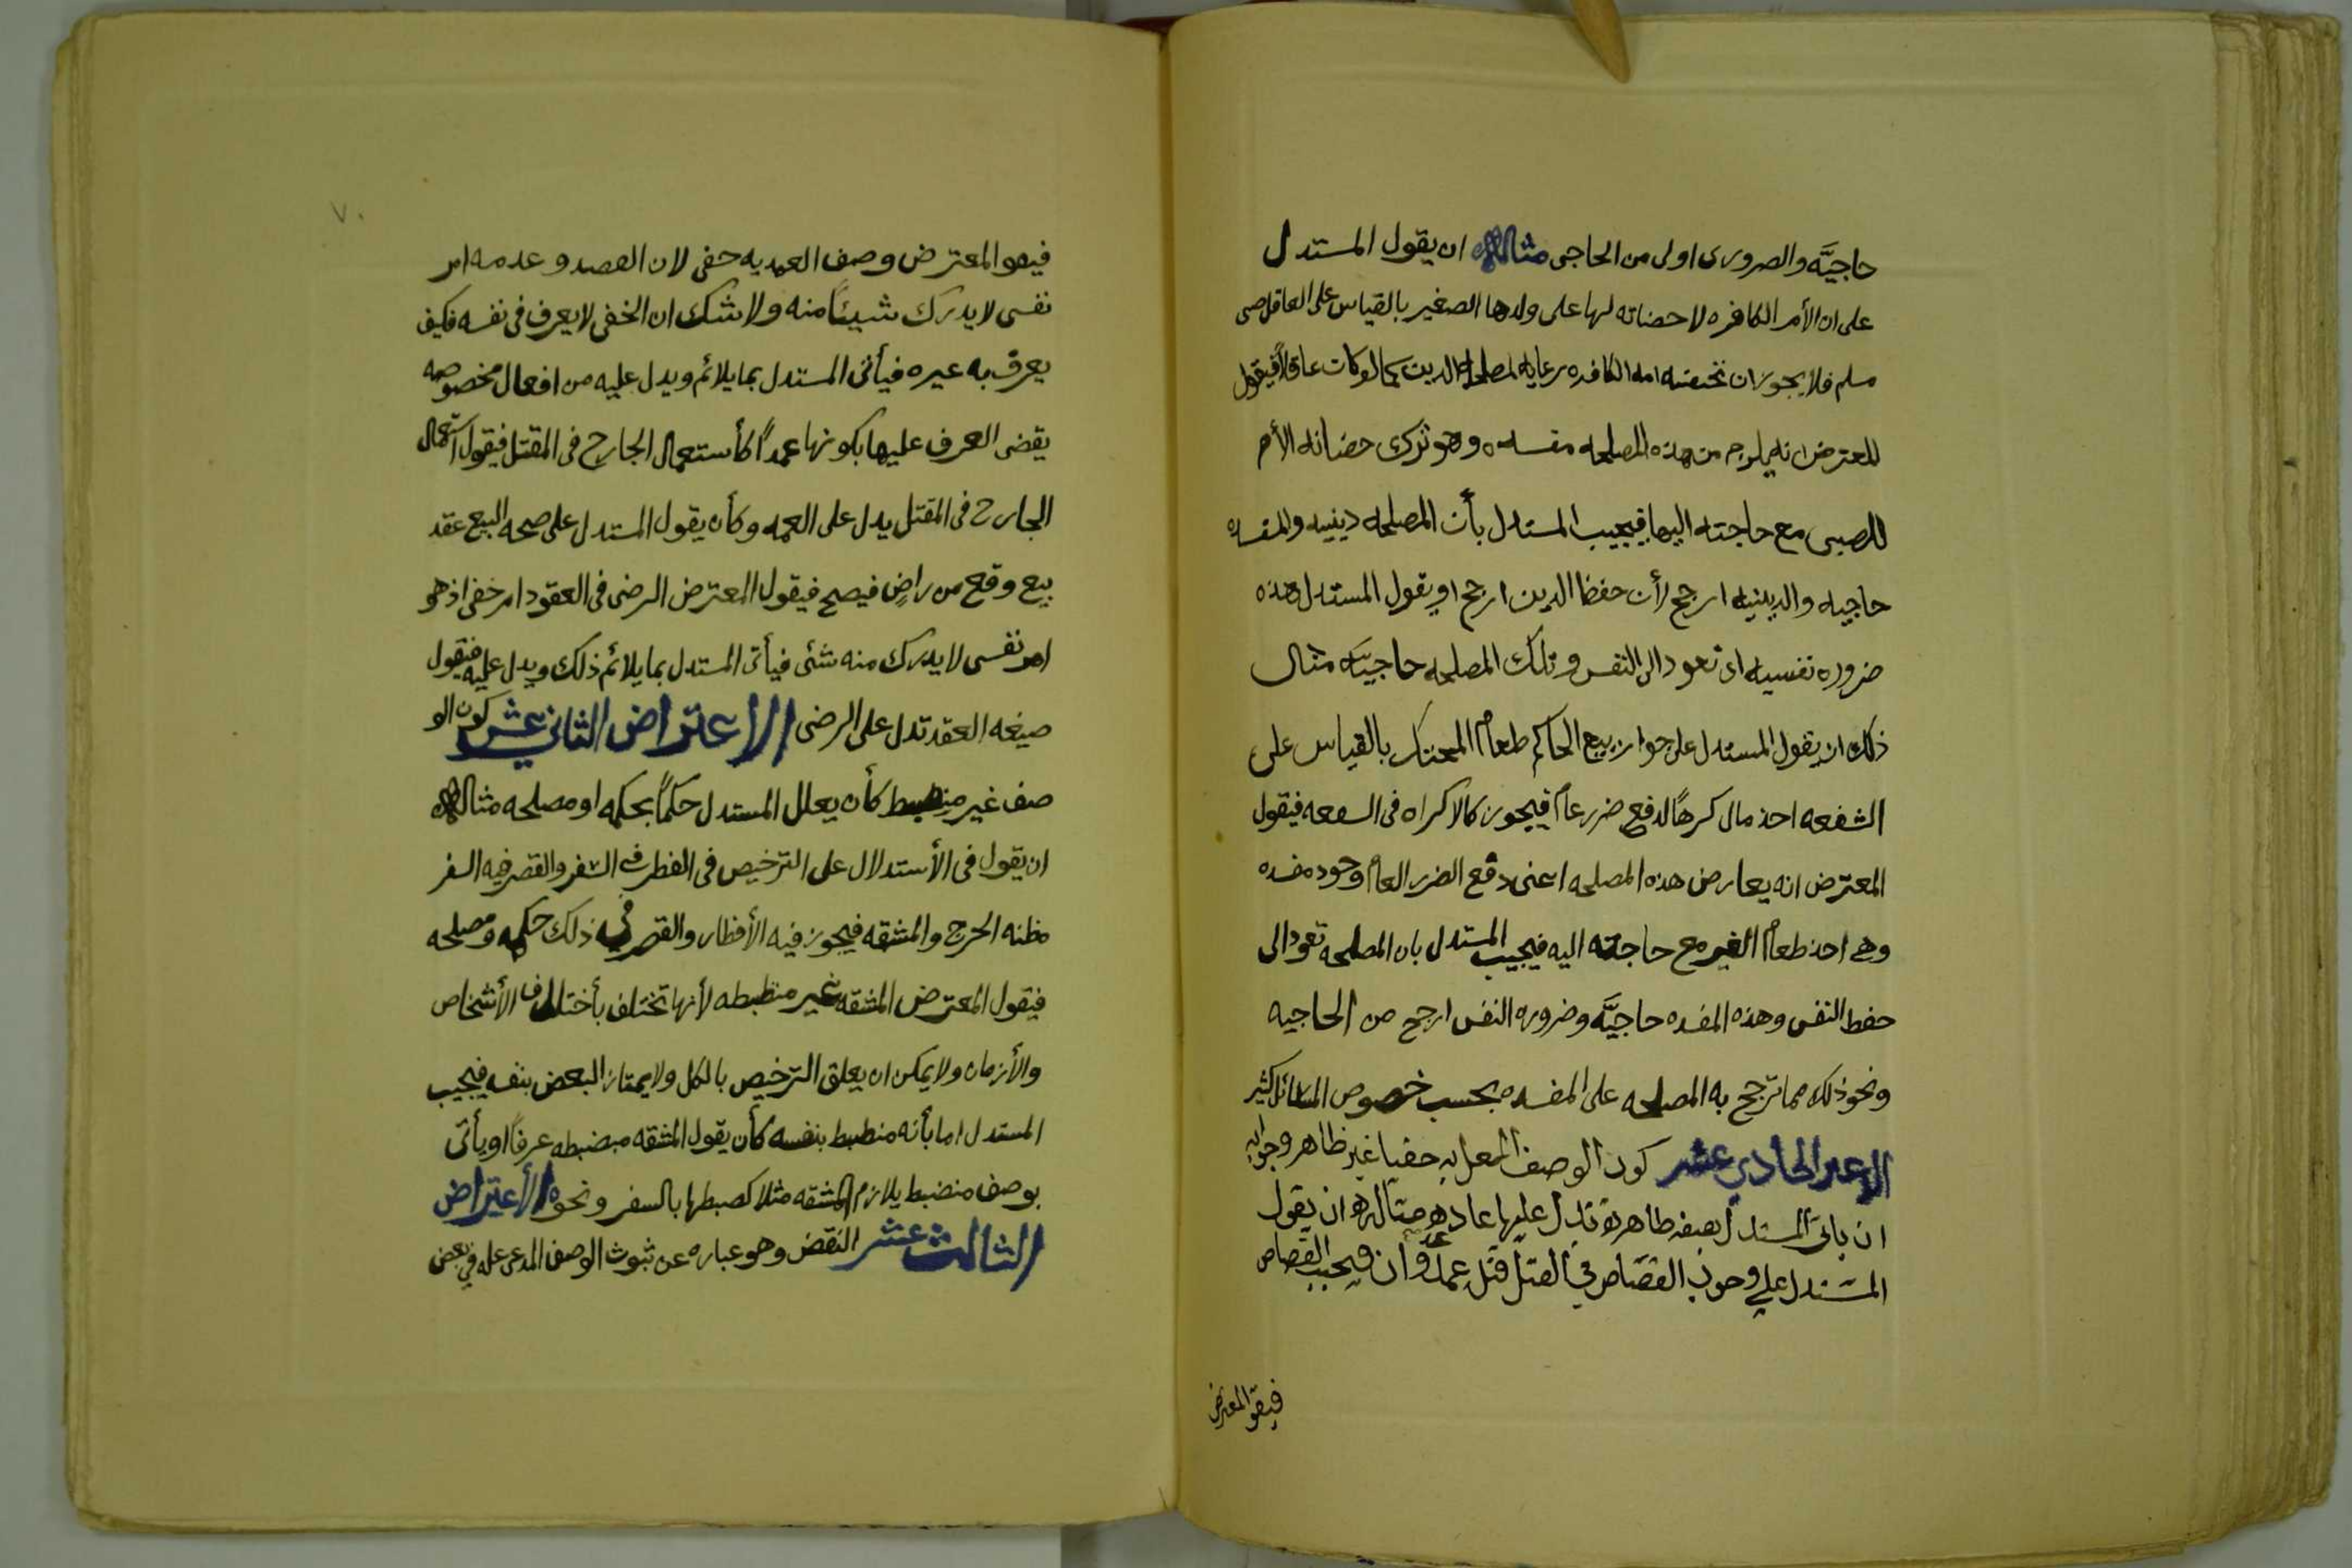 حاجيَّه والضرورى اولى من الحاجى مثاله ان يقول المستدل
على ان الأم الكافره لا حضانه لها على ولدها الصغير بالقياس على العاقل صبى
مسلم فلا يجوز ان تحضنه امه الكافره رعايه لمصلحه الدين كما لو كان عاقلاً فيقول
المعترض انه يلزم من هذه المصلحه مفسده وهو ترك حضانه الأم
للصبى مع حاجته اليها فيجيب المستدل بأن المصلحه دينيه والمفسده
حاجيه والدينيه ارجح لأن حفظ الدين ارجح او يقول المستدل هذه
ضروره نفسيه اى تعود الى النفس وتلك المصلحه حاجيَّه مثال
ذلك ان يقول المستدل على جواز بيع الحاكم طعام المحتكر بالقياس على
الشفعه اخذ مال كرهاً لدفع ضرر عام فيجوز كالاكراه فى الشفعه فيقول
المعترض انه يعارض هذه المصلحه اعنى دفع الضرر العام وجود مفسده
وهى اخذ طعام الغير مع حاجته اليه فيجيب المستدل بان المصلحه تعود الى
حفظ النفس وهذه المفسده حاجيَّه وضروره النفس ارجح من الحاجيه
ونحو ذلك مما ترجح به المصلحه على المفسده بحسب خصوص المسائل كثير
الاعتر الحادي عشر كون الوصف المعل به خفيا غير ظاهر وجوابه
ان ياتى المستدل بصفه ظاهرة تدل عليها عاده مثاله ان يقول
المستدل على وجوب القصاص في القتل قتل عمد وان فيجب القصاص
فيقو المعترض
٧٠
فيقو المعترض وصف العمديه خفى لان القصد وعدمه امر
نفسى لا يدرك شيئاً منه ولا شك ان الخفى لا يعرف فى نفسه فكيف
يعرف به غيره فيأتى المستدل بما يلائم ويدل عليه من افعال مخصوصه
يقضى العرف عليها بكونها عمداً كأستعمال الجارح فى المقتل فيقول استعمال
الجارح فى المقتل يدل على العمد وكأن يقول المستدل على صحه البيع عقد
بيع وقع من راضٍ فيصح فيقول المعترض الرضى فى العقود امر خفى اذ هو
امر نفسى لا يدرك منه شئى فيأتى المستدل بما يلائم ذلك ويدل عليه فيقول
صيغه العقد تدل على الرضى الاعتراض الثاني عشر كون الو
صف غير منضبط كأن يعلل المستدل حكماً بحكمه او مصلحه مثاله
ان يقول فى الأستدلال على الترخيص فى الفطر فى السفر والقصر فيه السفر
مظنه الحرج والمشقه فيجوز فيه الأفطار والقصر في ذلك حكمه ومصلحه
فيقول المعترض المشقه غير منظبطه لأنها تختلف بأختلاف الأشخاص
والأزمان ولا يمكن ان يعلق الترخيص بالكل ولا يمتاز البعض بنفسه فيجيب
المستدل اما بأنه منظبط بنفسه كأن يقول المشقه مبضبطه عرفاً او يأتى
بوصف منضبط يلازم المشقه مثلا كضبطها بالسفر ونحوه الأعتراض
الثالث عشر النقض وهو عباره عن ثبوت الوصف المدعى عله في بعض